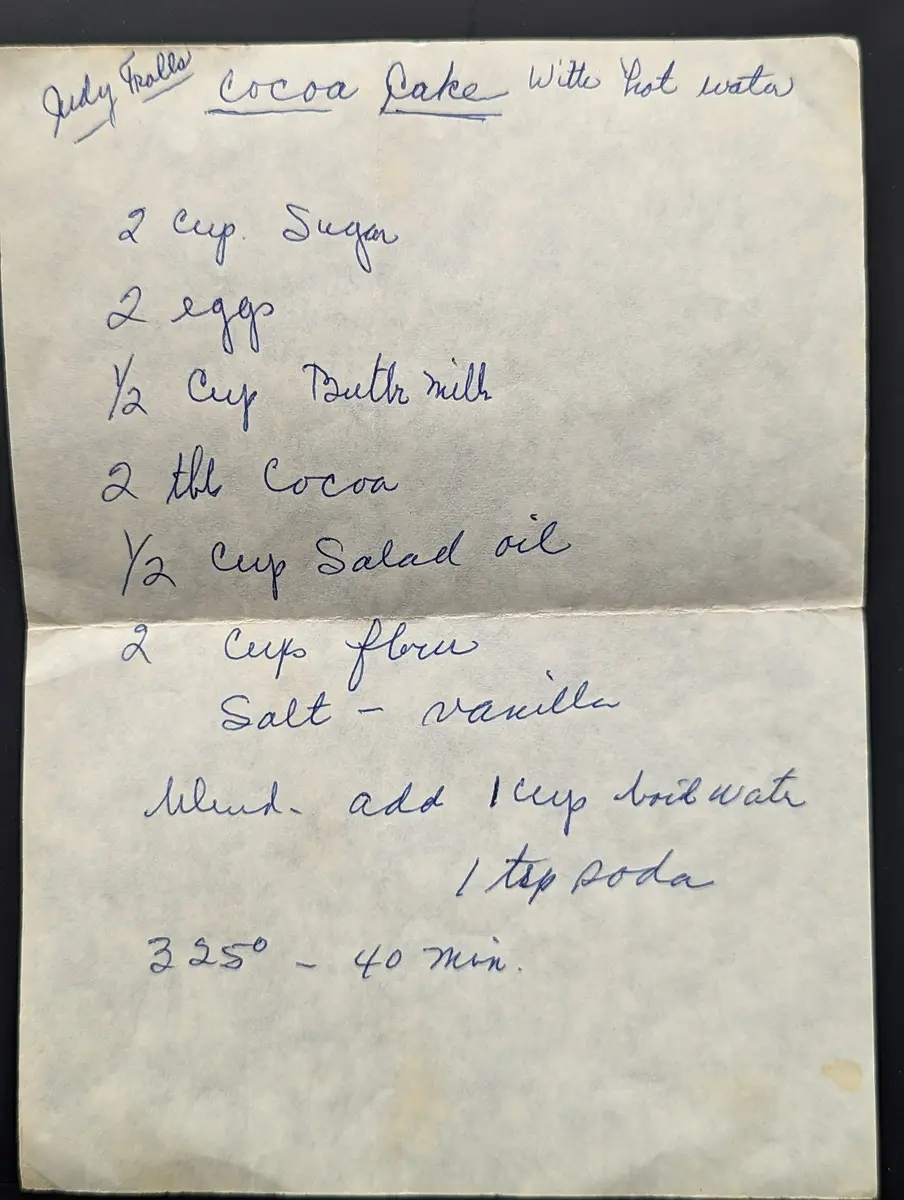 Judy Tralls Cocoa Cake With hot water
2 Cup. Sugar
2 eggs
1/2 Cup Buttr milk
2 tbl Cocoa
1/2 Cup Salad oil
2 Cups flour
Salt - vanilla
blend - add 1 cup boil water
1 tsp soda
325° - 40 min.